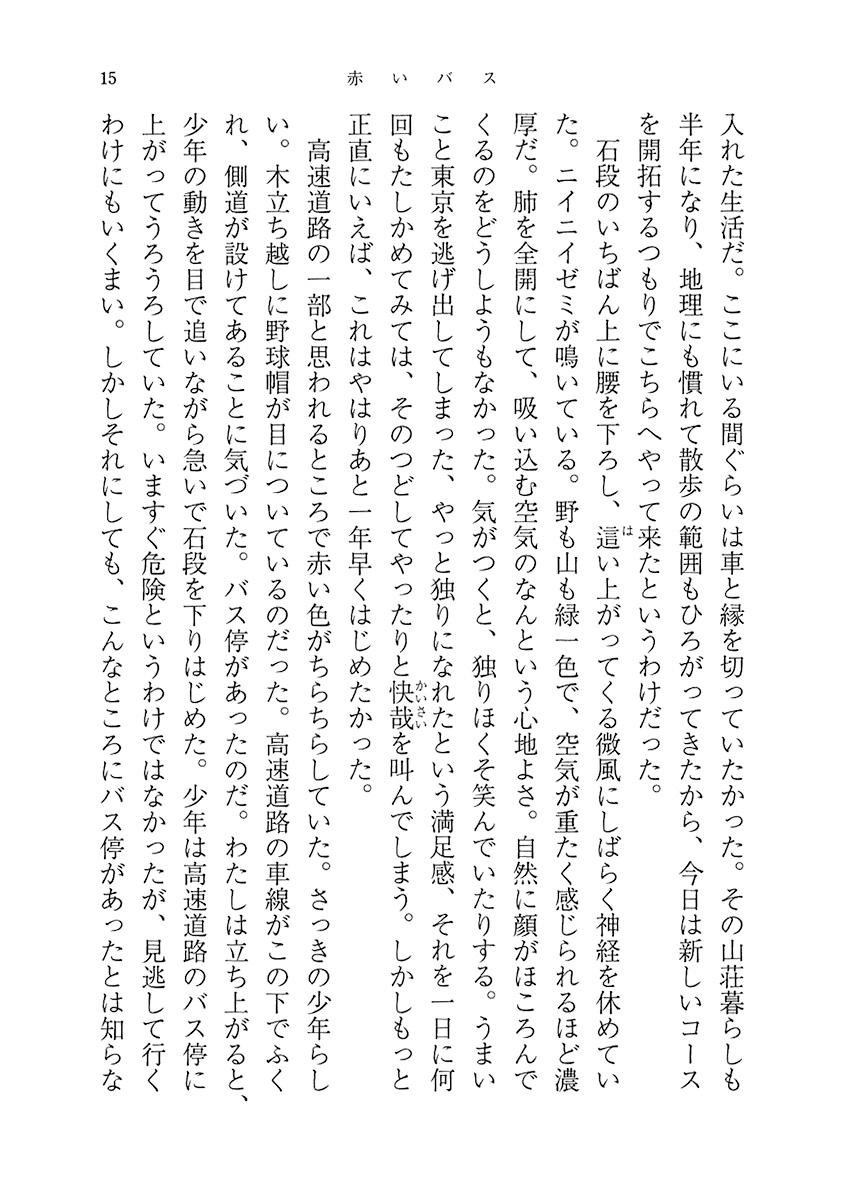 15
赤いバス
入れた生活だ。ここにいる間ぐらいは車と縁を切っていたかった。その山荘暮らしも
半年になり、地理にも慣れて散歩の範囲もひろがってきたから、今日は新しいコース
を開拓するつもりでこちらへやって来たというわけだった。
　石段のいちばん上に腰を下ろし、這い上がってくる微風にしばらく神経を休めてい
は
た。ニイニイゼミが鳴いている。野も山も緑一色で、空気が重たく感じられるほど濃
厚だ。肺を全開にして、吸い込む空気のなんという心地よさ。自然に顔がほころんで
くるのをどうしようもなかった。気がつくと、独りほくそ笑んでいたりする。うまい
こと東京を逃げ出してしまった、やっと独りになれたという満足感、それを一日に何
回もたしかめてみては、そのつどしてやったりと快哉を叫んでしまう。しかしもっと
かいさい
正直にいえば、これはやはりあと一年早くはじめたかった。
　高速道路の一部と思われるところで赤い色がちらちらしていた。さっきの少年らし
い。木立ち越しに野球帽が目についているのだった。高速道路の車線がこの下でふく
れ、側道が設けてあることに気づいた。バス停があったのだ。わたしは立ち上がると、
少年の動きを目で追いながら急いで石段を下りはじめた。少年は高速道路のバス停に
上がってうろうろしていた。いますぐ危険というわけではなかったが、見逃して行く
わけにもいくまい。しかしそれにしても、こんなところにバス停があったとは知らな